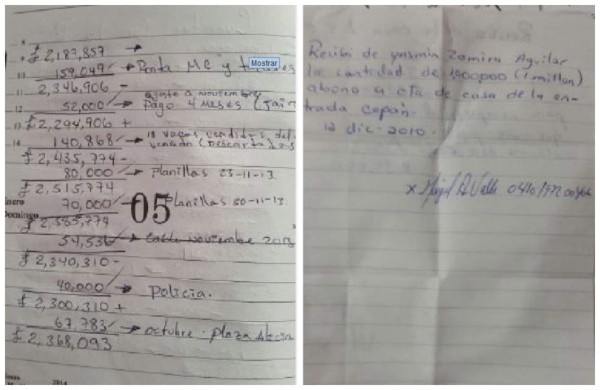 ₤ 2,187,857
159,049 → Renta MC y
Mostrar
2,346,906 - ajuste a noviembre
52,000 → Pago 4 MESES
₤ 2,294,906 +
140,868 → 18 vacas vendidas del
₤ 2,435,774 -
80,000 → Planillas 23-11-13
₤ 2,515,774
70,000 → Planillas 30-11-13
Enero
05
Domingo
₤ 2,385,774
54,536 → Cable noviembre 2013
₤ 2,340,310 -
40,000 → Policia.
₤ 2,300,310 +
67,783 → octubre. plaza
₤ 2,368,093
2014
Recibi de yasmin Zamira Aguilar
la cantidad de 1000000 (1 millon)
abono a cta de casa de la en-
trada copan.
12 dic. 2010.
x